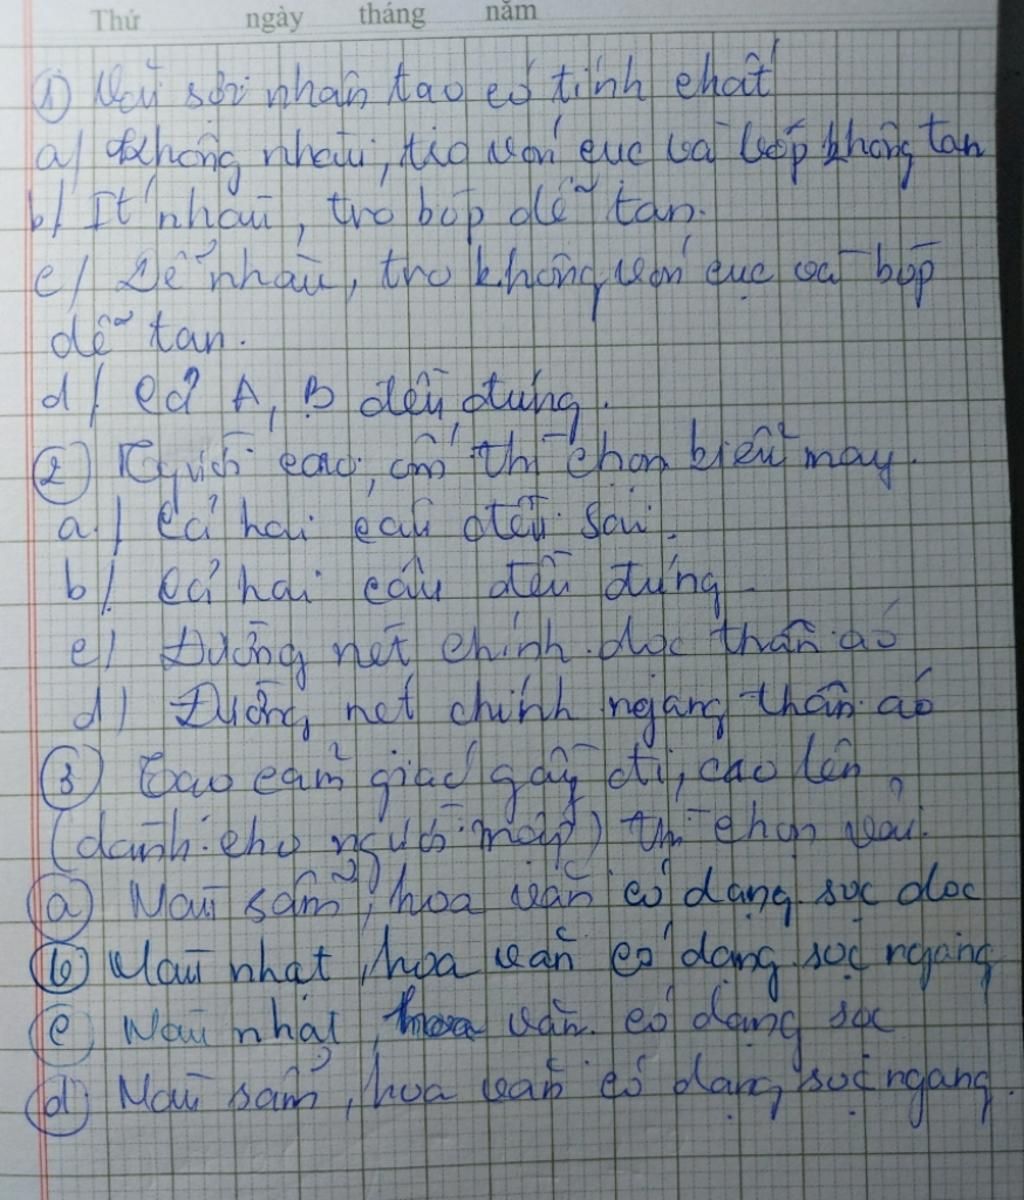 Thứ ngày tháng năm
① Vải sợi nhân tạo có tính chất
a/ không nhàu, tro vón cục và bóp không tan
b/ Ít nhàu, tro bóp dễ tan.
c/ Dễ nhàu, tro không vón cục và bóp
dễ tan.
d/ Cả A, B đều đúng.
② Người cao, ốm thì chọn kiểu may.
a/ Cả hai câu đều sai.
b/ Cả hai câu đều đúng
c/ Đường nét chính dọc thân áo
d/ Đường nét chính ngang thân áo
③ Tạo cảm giác gầy đi, cao lên
(dành cho người mập) thì chọn vải.
ⓐ Màu sẫm, hoa văn có dạng sọc dọc
ⓑ Màu nhạt, hoa văn có dạng sọc ngang
ⓒ Màu nhạt, hoa văn có dạng sọc
ⓓ Màu sẫm, hoa văn có dạng sọc ngang.